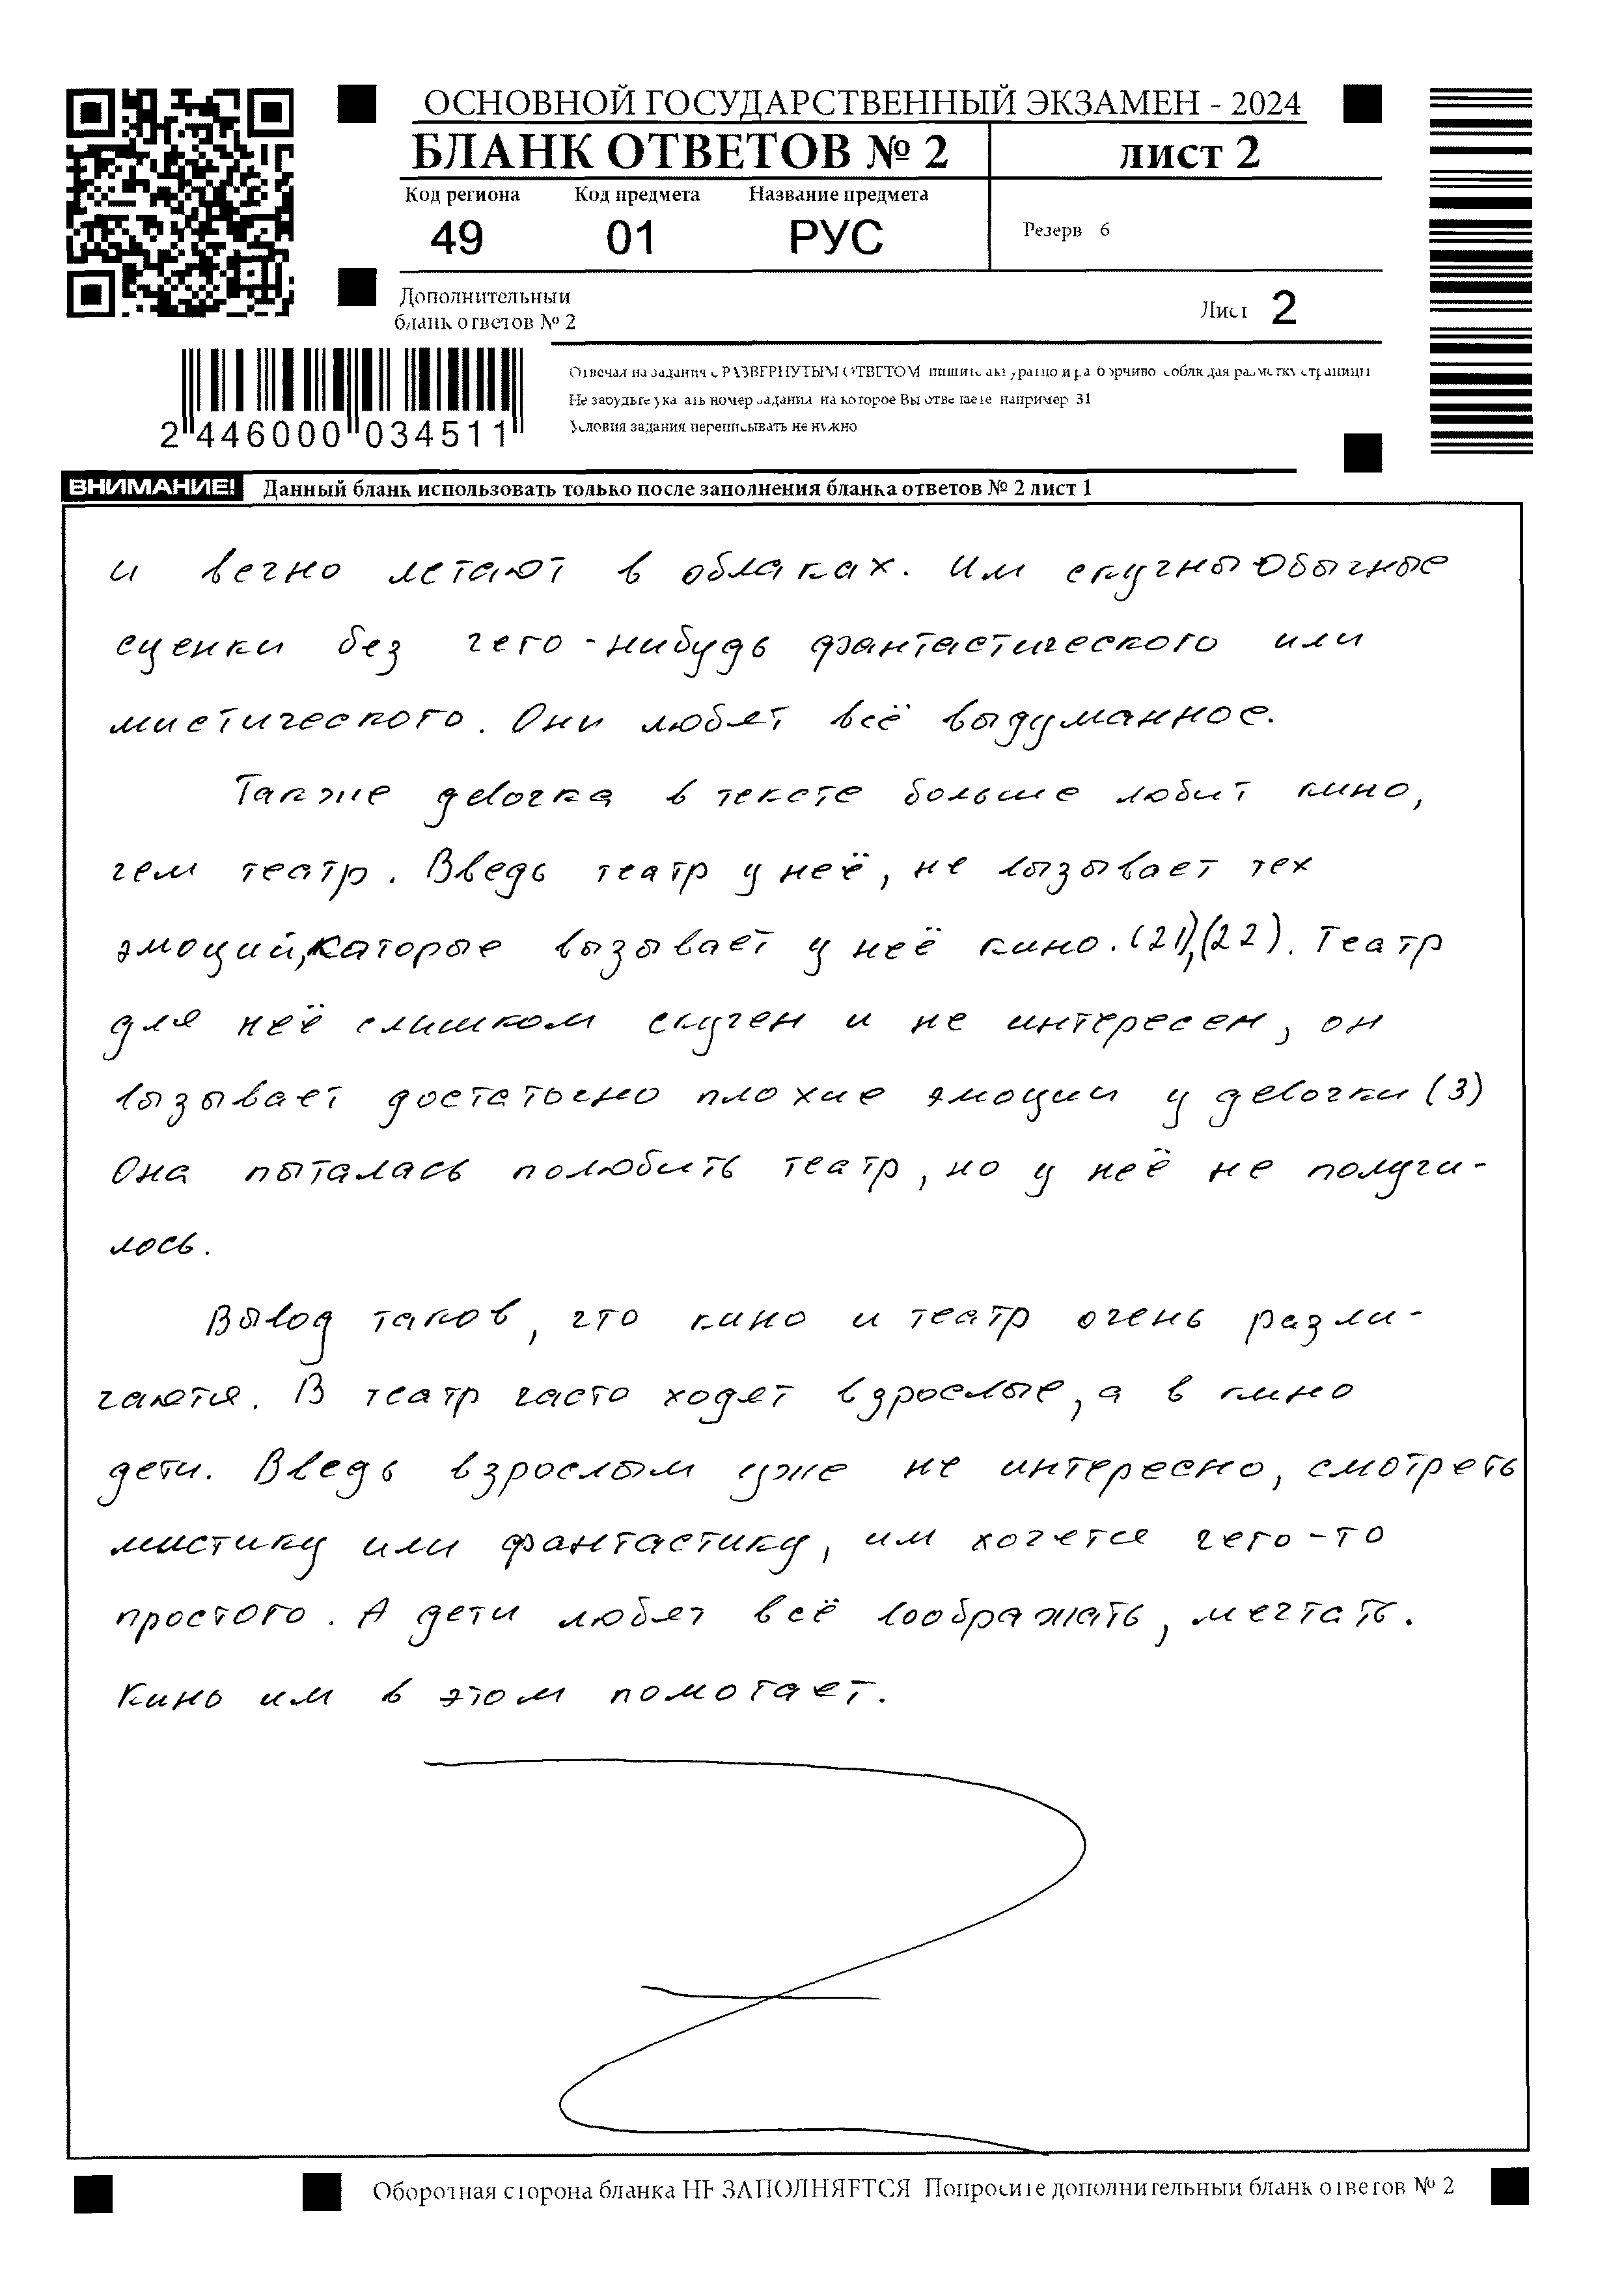 ОСНОВНОЙ ГОСУДАРСТВЕННЫЙ ЭКЗАМЕН - 2024
БЛАНК ОТВЕТОВ № 2
ЛИСТ 2
Код региона Код предмета Название предмета
49 01 РУС
Резерв 6
Дополнительный
бланк ответов № 2
Лист 2
Отвечая на задания с РАЗВЕРНУТЫМ ОТВЕТОМ пишите аккуратно и разборчиво соблюдая разметку страницы
Не забудьте указать номер задания на которое Вы отвечаете например 31
Условия задания переписывать не нужно
2 446000 034511
ВНИМАНИЕ! Данный бланк использовать только после заполнения бланка ответов № 2 лист 1
и вечно летают в облаках. Им скучны обычные
сценки без чего-нибудь франтастического или
мистического. Они любят всё выдуманное.
Также девочка в тексте больше любит кино,
чем театр. Введь театр у неё, не вызывает тех
эмоций, каторые вызывает у неё кино. (21),(22). Театр
для неё слишком скучен и не интересен, он
вызывает достаточно плохие эмоции у девочки (3)
Она пыталась полюбить театр, но у неё не получи-
лось.
Вывод таков, что кино и театр очень разли-
чаются. В театр часто ходят взрослые, а в кино
дети. Введь взрослым уже не интересно, смотреть
мистику или франтастику, им хочется чего-то
простого. А дети любят всё воображать, мечтать.
Кино им в этом помогает.
Оборотная сторона бланка НЕ ЗАПОЛНЯЕТСЯ Попросите дополнительный бланк ответов № 2